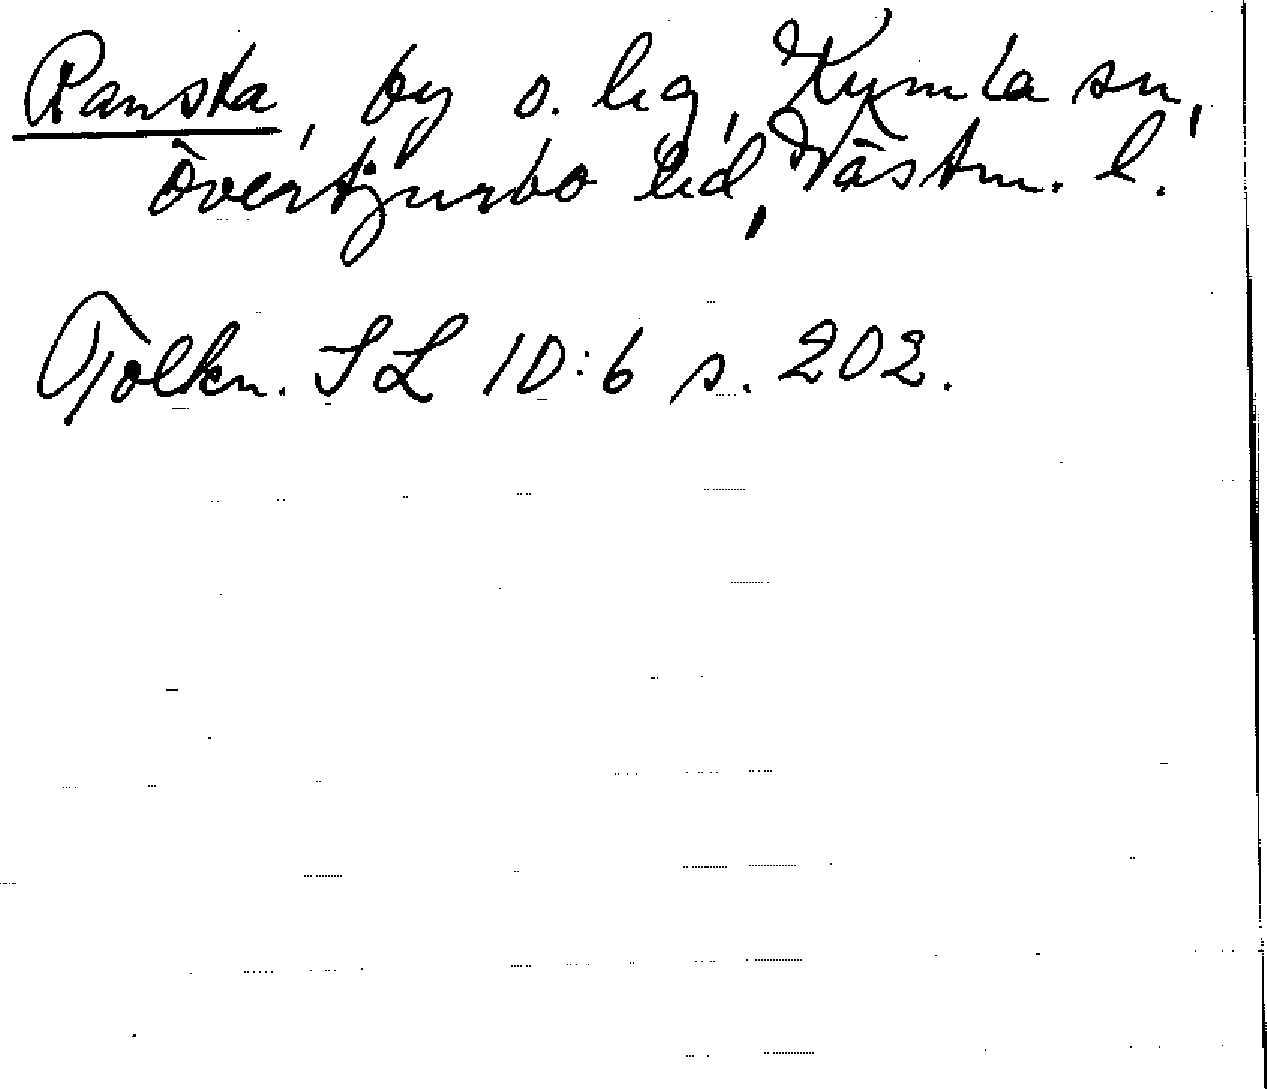 Ransta, by o. lg, Kumla sn,
Övertjurbo hd, Västm. l.
Tolkn. SL 10:6 s. 202.